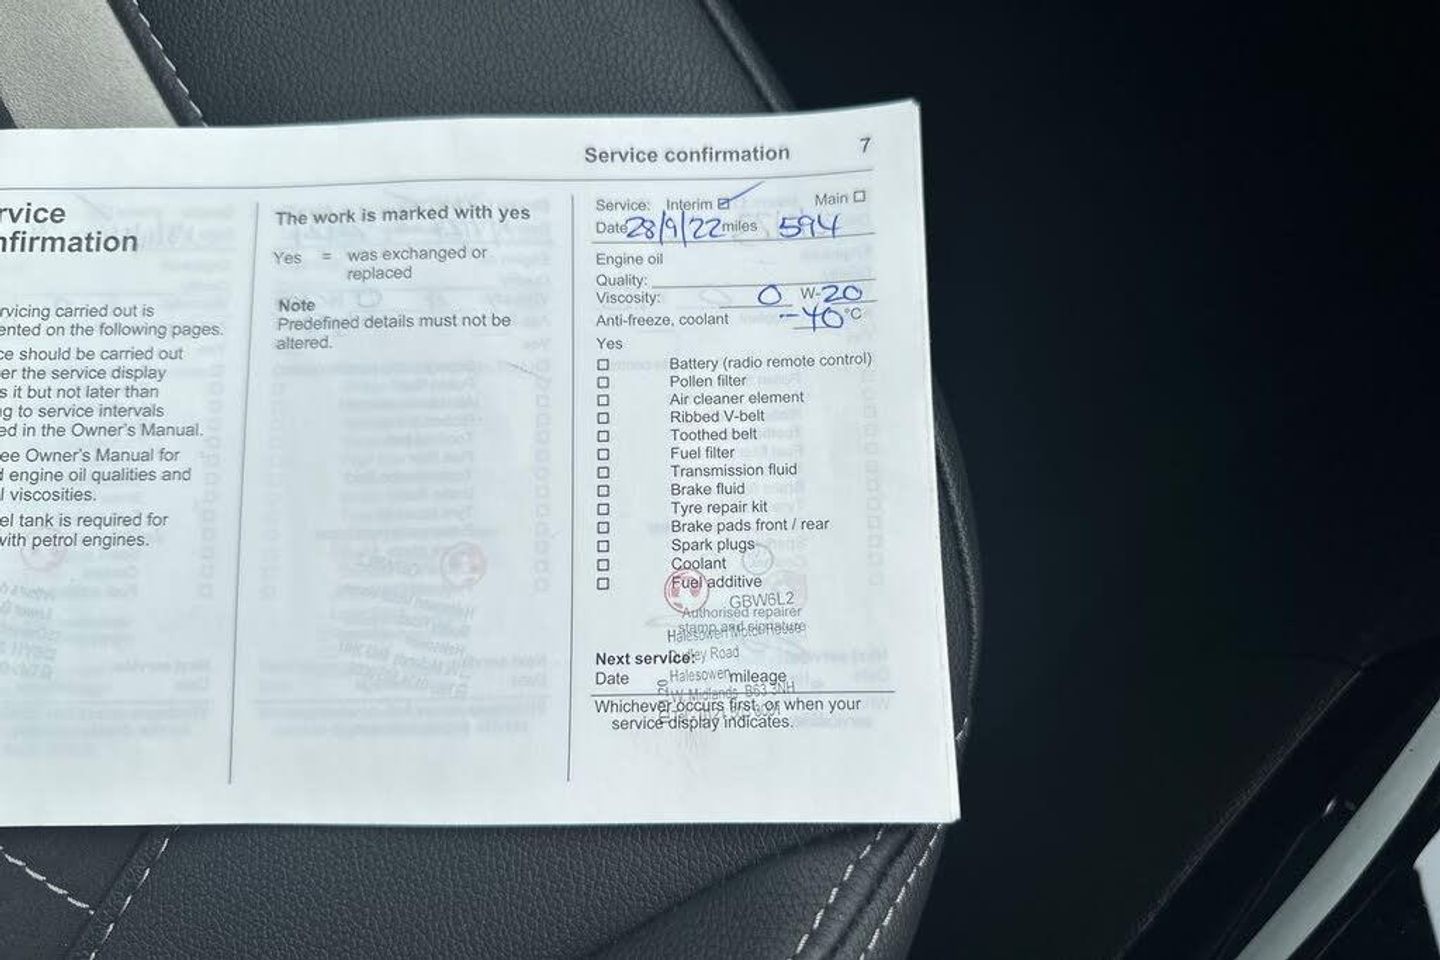 Service confirmation 7
rvice
nfirmation
rvicing carried out is
ented on the following pages.
ce should be carried out
er the service display
s it but not later than
ng to service intervals
ed in the Owner's Manual.
ee Owner's Manual for
d engine oil qualities and
l viscosities.
el tank is required for
with petrol engines.
The work is marked with yes
Yes = was exchanged or
replaced
Note
Predefined details must not be
altered.
Service: Interim Main
Date 28/9/22 miles 594
Engine oil
Quality:
Viscosity: 0 W-20
Anti-freeze, coolant -40 °C
Yes
Battery (radio remote control)
Pollen filter
Air cleaner element
Ribbed V-belt
Toothed belt
Fuel filter
Transmission fluid
Brake fluid
Tyre repair kit
Brake pads front / rear
Spark plugs
Coolant
Fuel additive
GBW6L2
Authorised repairer
stamp and signature
Halesowen Motor House
Dudley Road
Next service:
Halesowen
Date mileage
W. Midlands B63 3NH
Whichever occurs first, or when your
service display indicates.